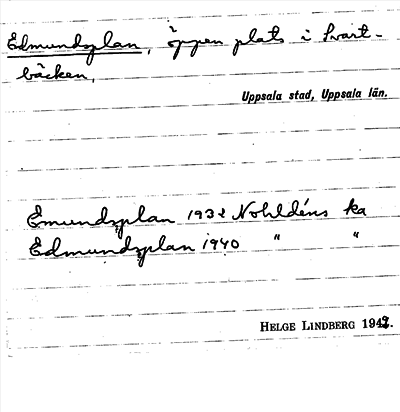 Edmundsplan, öppen plats i Svart-
bäcken,
Uppsala stad, Uppsala län.
Emundsplan 1932 Nohldéns ka
Edmundsplan 1940 " "
HELGE LINDBERG 1942.